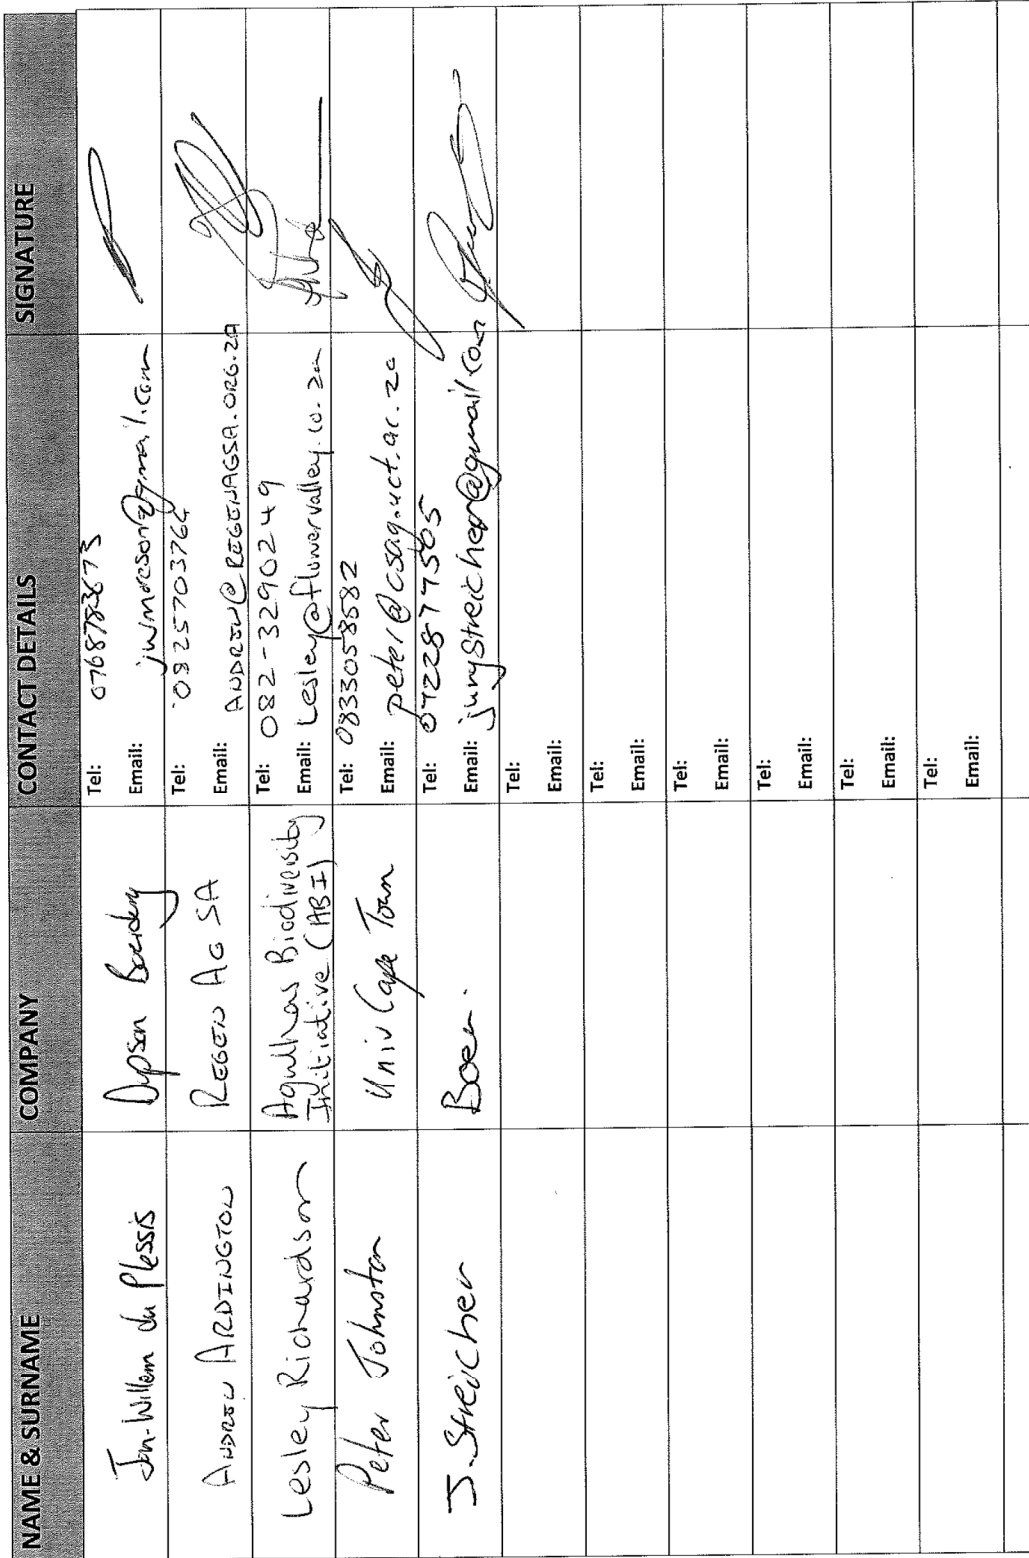 NAME & SURNAME COMPANY CONTACT DETAILS SIGNATURE
Jan-Willem du Plessis
Tel: 0768783673
Email:
ANDREW ARDINGTON REGEN AG SA
Tel: 0825703764
Email: ANDREW@REGENAGSA.ORG.ZA
Lesley Richardson Agulhas Biodiversity
Initiative (ABI)
Tel: 082-3290249
Email: Lesley@flowervalley.co.za
Peter Johnston Univ Cape Town
Tel: 0833058582
Email: peter@csag.uct.ac.za
J. Streicher Boer.
Tel: 0722877505
Email:
Tel:
Email:
Tel:
Email:
Tel:
Email:
Tel:
Email:
Tel:
Email:
Tel:
Email: